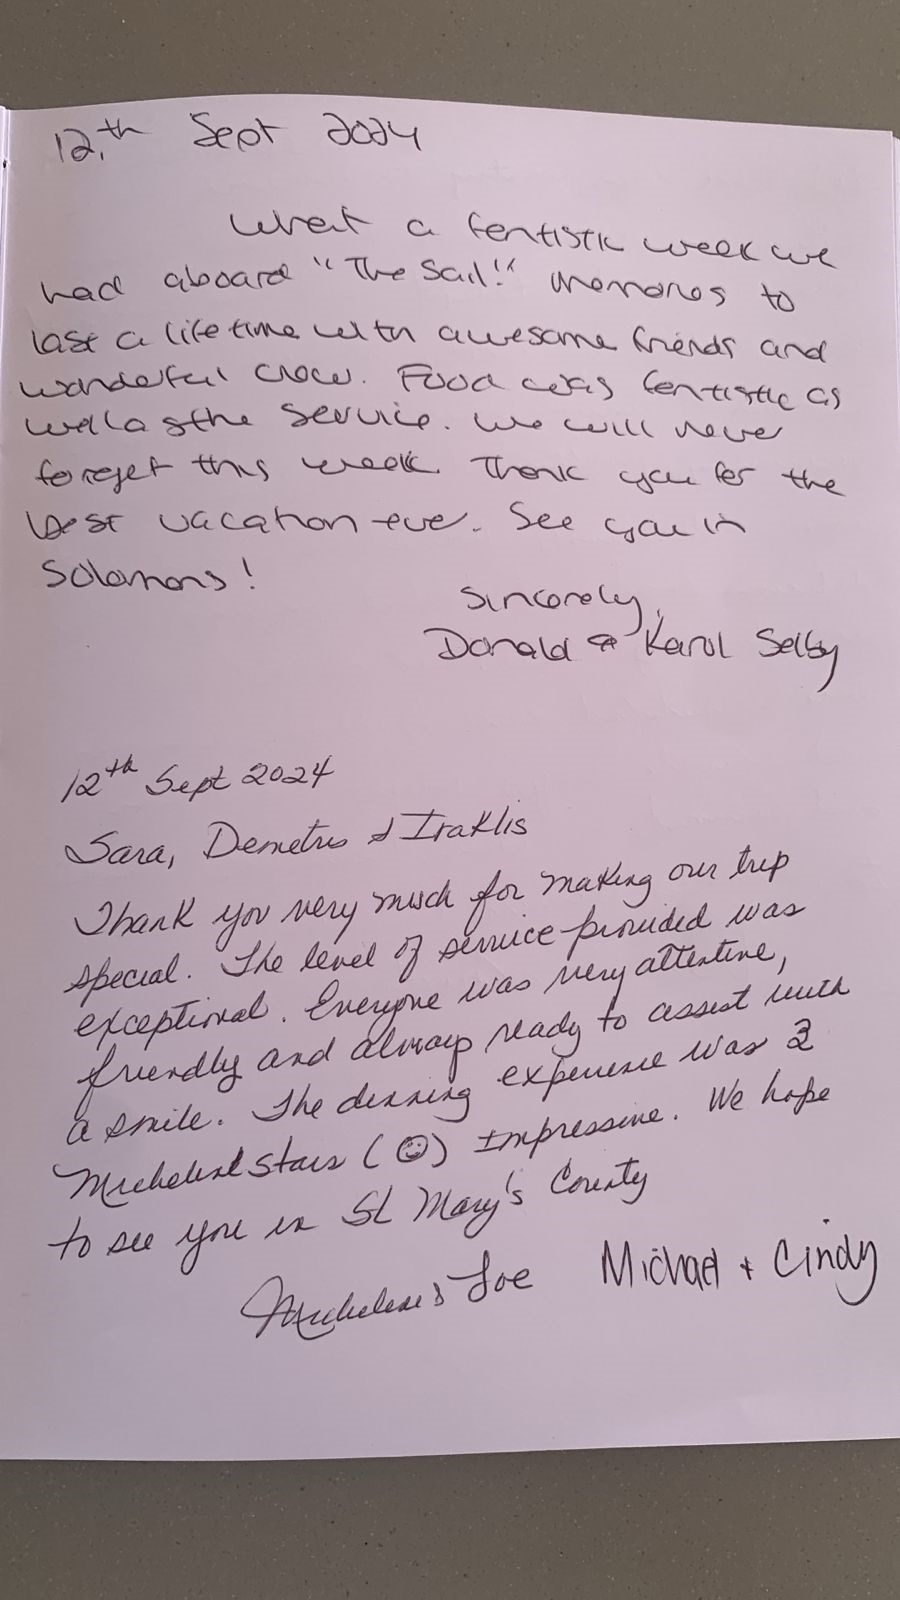 12.th Sept 2024
What a fentistic week we
had aboard "The Sail!" Memories to
last a lifetime with awesome friends and
wonderful crew. Food was fentistic as
well as the service. We will never
forget this week. Thank you for the
best vacation ever. See you in
Solomons!
Sincerely,
Donald & Karol Selby
12th Sept 2024
Sara, Demetris & Iraklis
Thank you very much for making our trip
special. The level of service provided was
exceptional. Everyone was very attentive,
friendly and always ready to assist with
a smile. The dinning experience was 3
Michelin Stars (☺) Impressive. We hope
to see you in St Mary's County
Michelene & Joe Michael + Cindy